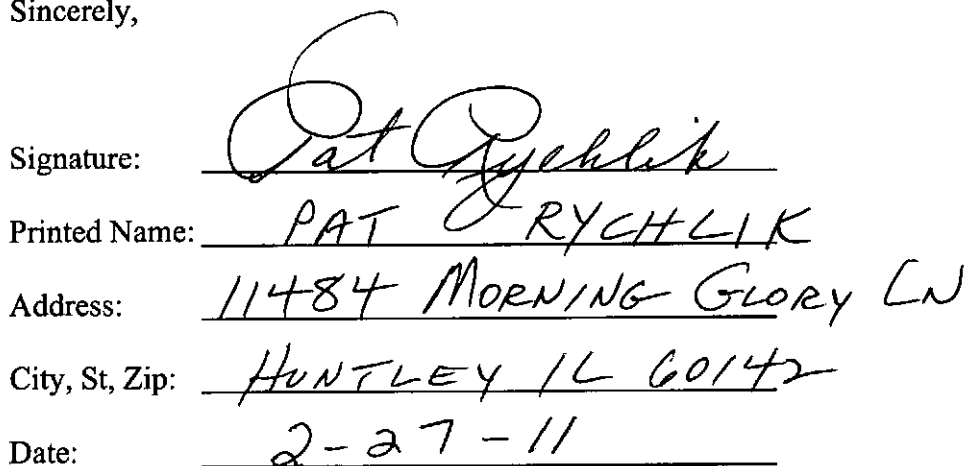 Sincerely,
Signature: Pat Rychlik
Printed Name: PAT RYCHLIK
Address: 11484 MORNING GLORY LN
City, St, Zip: HUNTLEY IL 60142
Date: 2-27-11